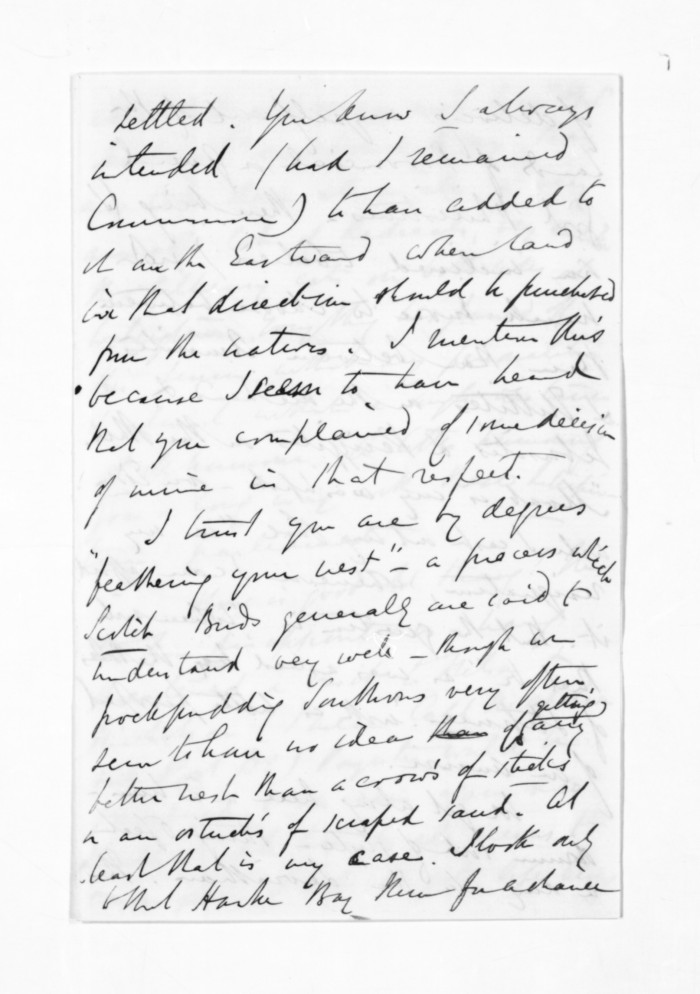 settled. You know I always
intended (had I remained
Commissr) to have added to
it on the Eastward when land
in that direction should be purchased
from the natives. I mention this
because I seem to have heard
that you complained of some decision
of mine in that respect.
I trust you are by degrees
"feathering your nest" - a process which
Scotch Birds generally are said to
understand very well - though we
pockpudding Southrons very often
seem to have no idea than of getting any
better nest than a crow's of sticks
or an ostrich's of scraped sand. At
least that is my case. I look only
to that Hawke Bay Run for a chance